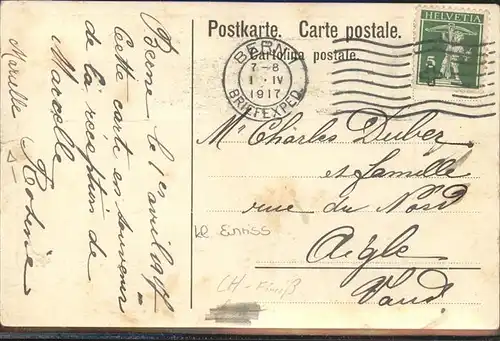 Postkarte. Carte postale.
Cartolina postale.
BERN
7-8
1 IV
1917
BRIEFEXPED.
HELVETIA
5
Berne le 1er avril 1917
Cette carte en souvenir
de la réception de
Marcelle
Marcelle
Mr Charles Dubez
et famille
rue du Nord
Aigle
Vaud.
kl Einriss
CH-